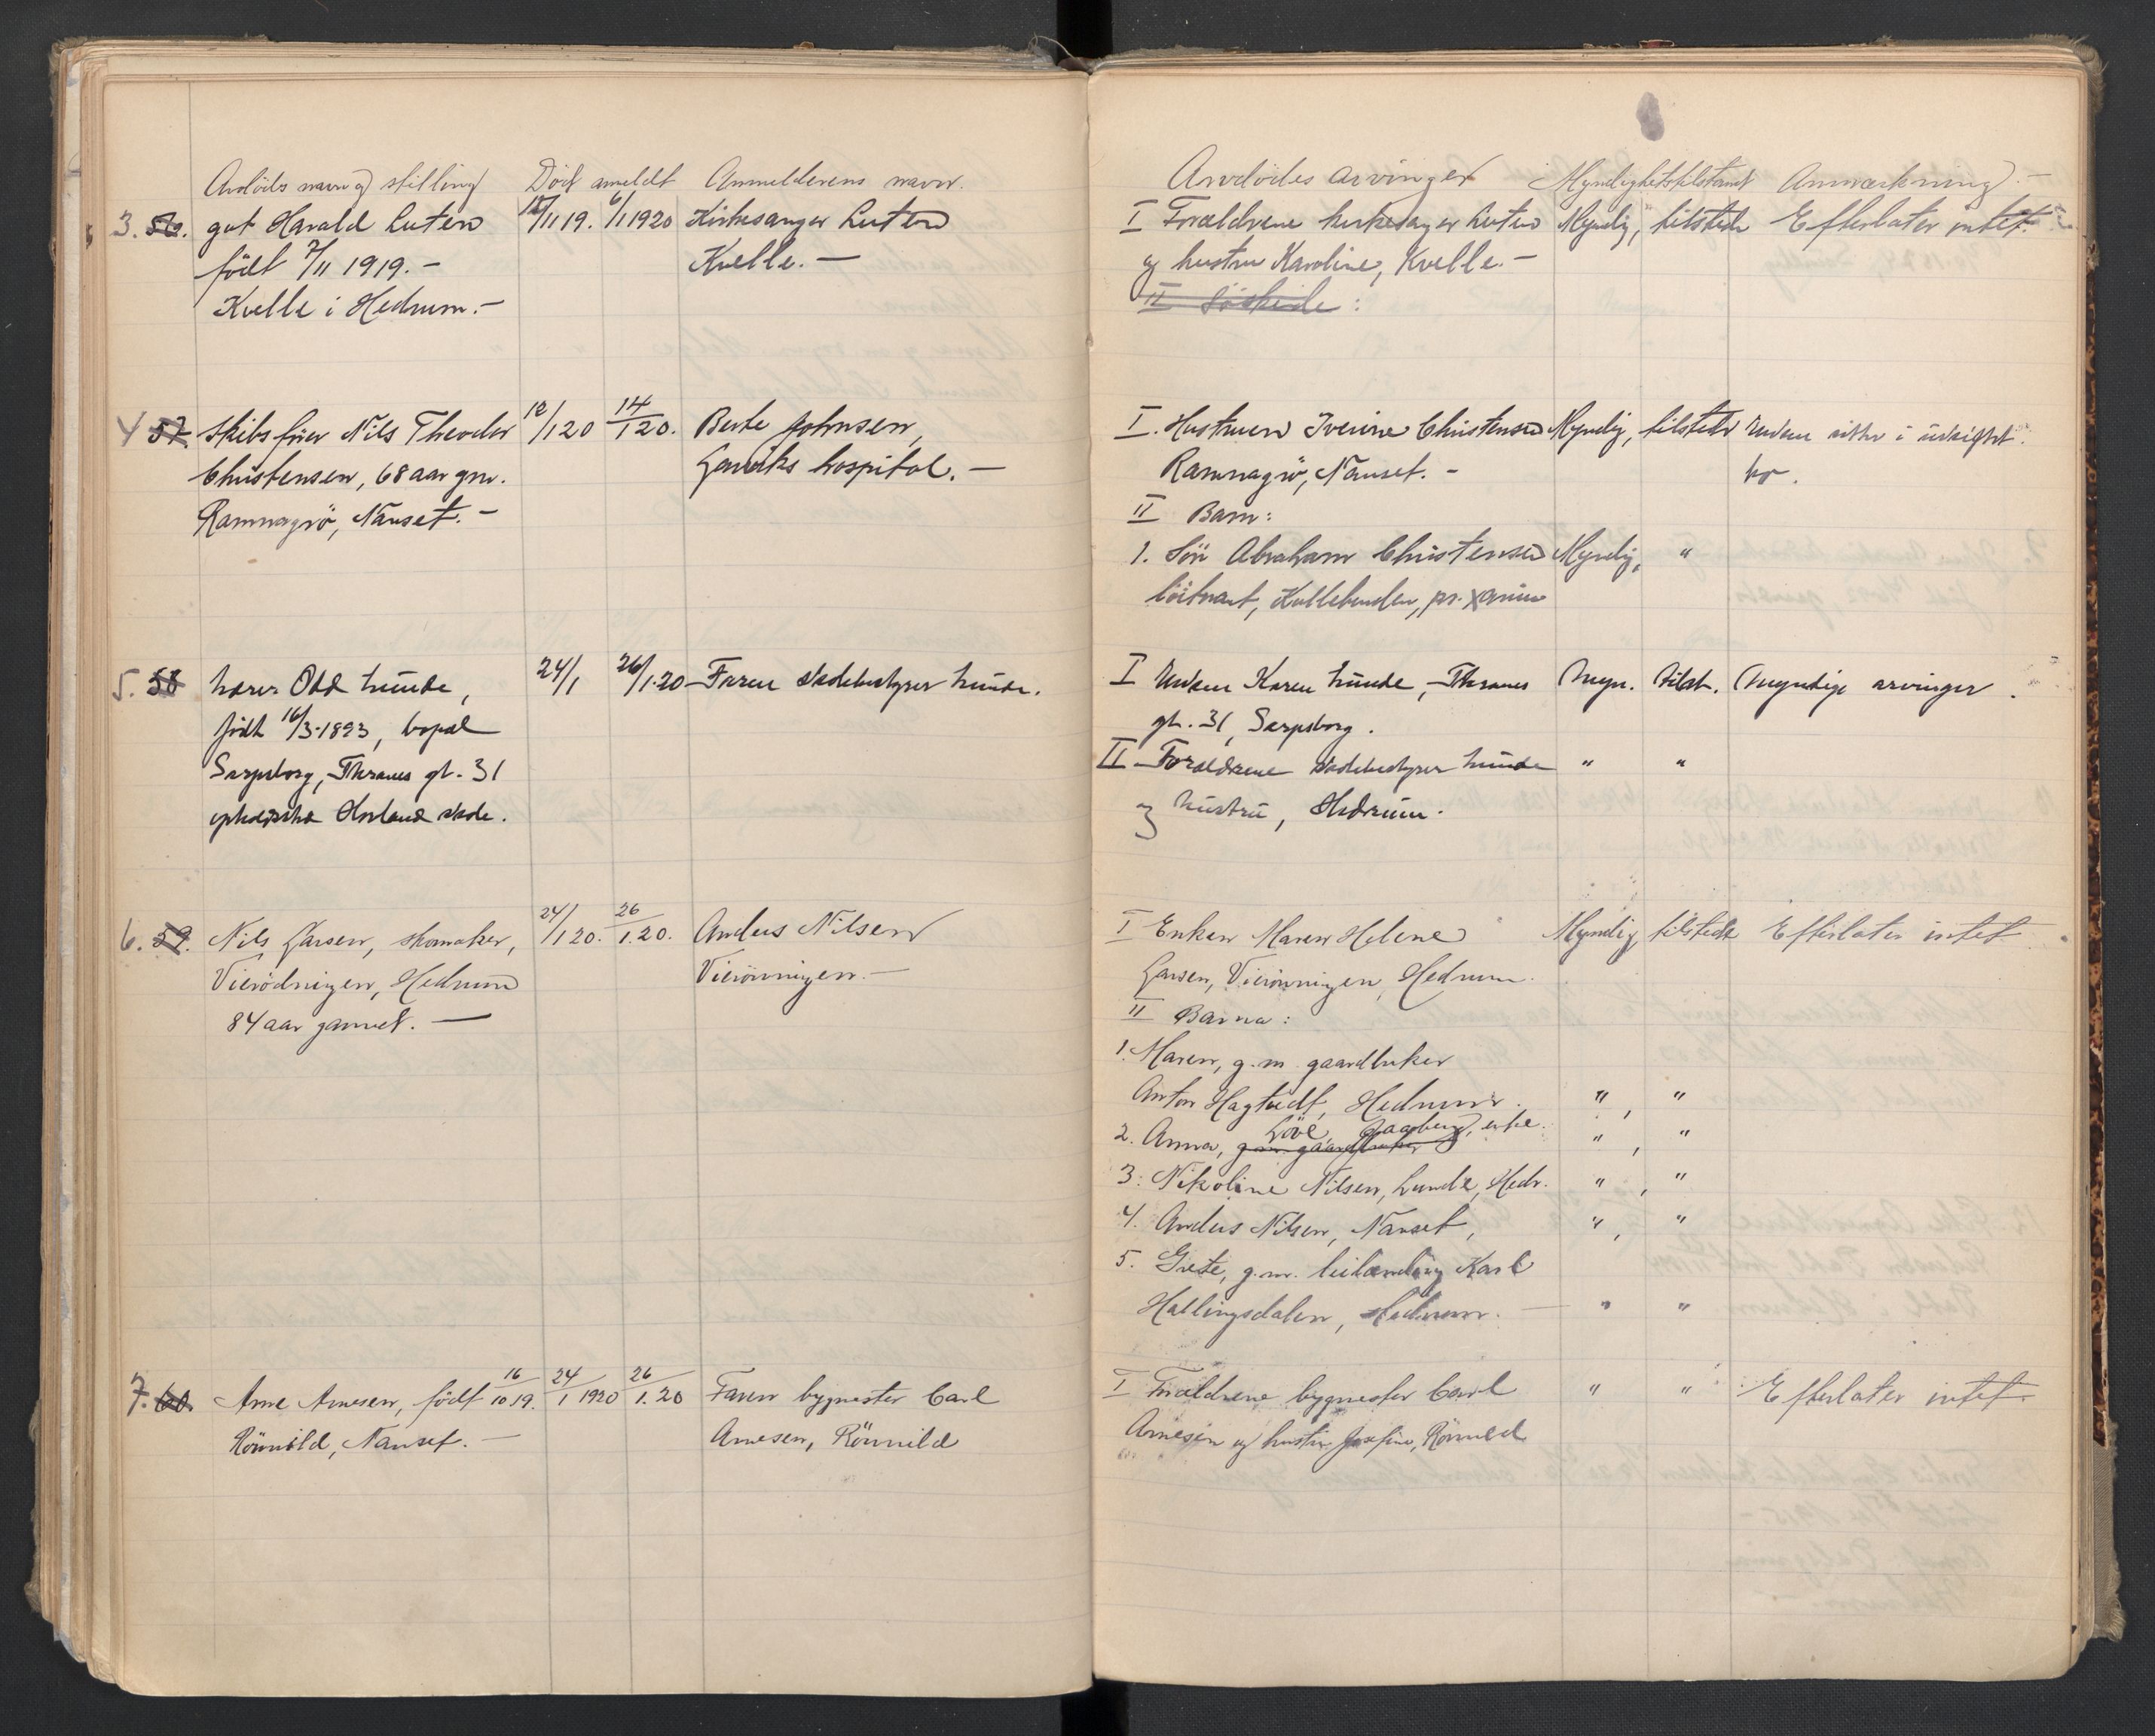 Avdødes navn og stilling Död anmeldt Anmelderens navn.
3. 56. gut Harald Luten 12/11 19. 6/1 1920 Kirkesanger Luten
født 7/11 1919. - Kvelle. -
Kvelle i Hedrum. -
4 57. skibsfører Nils Theodor 12/1 20 14/1 20. Berte Johnsen,
Christensen, 68 aar gm. Larviks hospital. -
Ramnagrö, Nanset. -
5. 58 lærer Odd Lunde, 24/1 26/1.20 Faren skolebestyrer Lunde.
født 16/3-1893, bopæl
Sarpsborg, Thranes gt. 31
skole.
6. 59. Nils Larsen, skomaker, 24/1 20. 26/1.20. Anders Nilsen
Vierödningen, Hedrum Vierönningen. -
84 aar gammel. -
7. 60. Arne Arnesen, født 16/10 19. 24/1 1920 26/1.20 Faren bygmester Carl
Rönnild, Nanset. - Arnesen, Rönnild
Avdödes arvinger Myndighetstilstand Anmærkning. -
I Forældrene kirkesanger Luten Myndig, tilstede Efterlater intet.
og hustru Karoline, Kvelle. -
II Söskende:
I. Hustruen Iverine Christensen Myndig, tilstede Enken sitter i uskiftet
Ramnagrö, Nanset. - bo.
II Barn:
1. Sön Abraham Christensen Myndig, "
löitnant, pr.
I Enken Karen Lunde, Thranes Myn. tilst. Myndige arvinger.
gt. 31, Sarpsborg.
II Forældrene skolebestyrer Lunde " "
og hustru, Hedrum.
I Enken Maren Helene Myndig tilstede Efterlater intet
Larsen, Vierönningen, Hedrum.
II Barna:
1. Maren, g.m. gaardbruker
Anton Hagtvedt, Hedrum. " , "
2. Anna, g.m. gaardbruker Löve, Jaaberg, enke. " , "
3. Nikoline Nilsen, Lunde, Hedr. " , "
4. Anders Nilsen, Nanset, " , "
5. Grete, g.m. leilænding Karl
Hallingsdalen, Hedrum. - " "
I Forældrene bygmester Carl " " Efterlater intet.
Arnesen og hustru Josefine, Rönnild